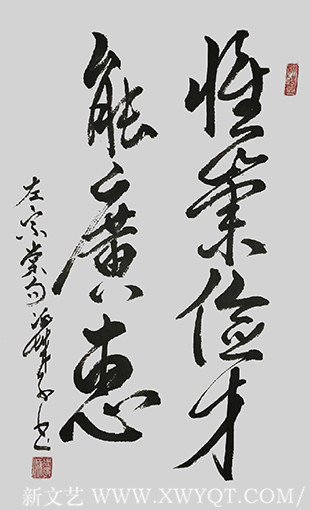 惟崇儉才
能廣惠
左宗棠句
新文艺 WWW.XWYQT.COM/